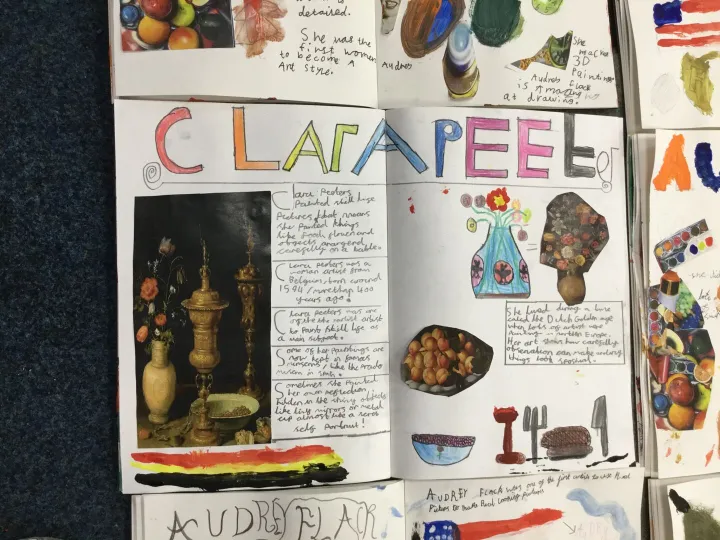 detailed.
She was the
first women
to become A
Art style.
Audrey
She
3D
Painting
Audrey Flack
is Amazing
at drawing.
CLARAPEETer
Clara Peeters
Painted still life
Pictures, that means
she painted things
like food, flowers and
objects arranged
carefully on a table.
Clara peeters was a
woman artist from
Belguim, born around
1594 / more than 400
years ago.
Clara peeters was
one of the earliest artist
to paint still life as
a main subject.
Some of her paintings are
now kept in famous
museums, like the Prado
musem in spain.
Sometimes she painted
her own reflection
hidden in the shiny objects
like tiny mirrors or metal
cup almost like a secret
self portrait!
=
She lived during a time
called the Dutch Golden age
when lots of artist were
Painting in northern Europe.
Her art shows how carefully
observation can make ordinary
things look special.
AUDREY FLACK
AUDREY FLACK was one of the first artists to use
Real Looking
AU